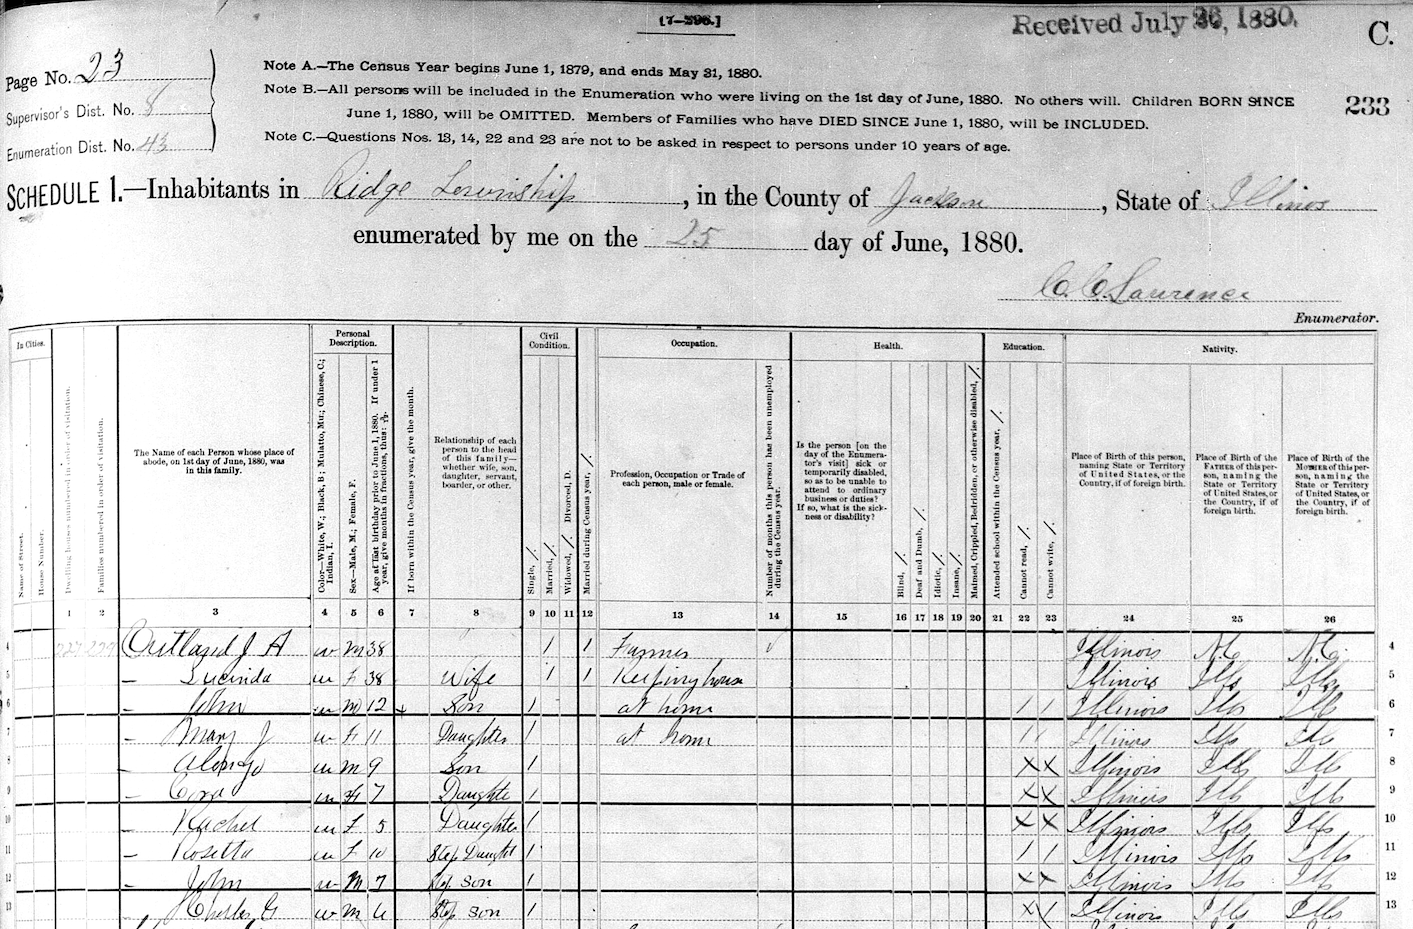 [7–296.]
Received July 26, 1880.
C.
Page No. 23
Supervisor's Dist. No. 8
Enumeration Dist. No. 43
Note A.—The Census Year begins June 1, 1879, and ends May 31, 1880.
Note B.—All persons will be included in the Enumeration who were living on the 1st day of June, 1880. No others will. Children BORN SINCE
June 1, 1880, will be OMITTED. Members of Families who have DIED SINCE June 1, 1880, will be INCLUDED.
Note C.—Questions Nos. 13, 14, 22 and 23 are not to be asked in respect to persons under 10 years of age.
233
SCHEDULE 1.—Inhabitants in Ridge Township, in the County of Jackson, State of Illinois
enumerated by me on the 25 day of June, 1880.
C. C. Lawrence
Enumerator.
In Cities.
Name of Street.
House Number.
Dwelling houses numbered in order of visitation.
Families numbered in order of visitation.
The Name of each Person whose place of
abode, on 1st day of June, 1880, was
in this family.
Personal
Description.
Color—White, W.; Black, B.; Mulatto, Mu.; Chinese, C.;
Indian, I.
Sex—Male, M.; Female, F.
Age at last birthday prior to June 1, 1880. If under 1
year, give months in fractions, thus: 3/12.
If born within the Census year, give the month.
Relationship of each
person to the head
of this family—
whether wife, son,
daughter, servant,
boarder, or other.
Civil
Condition.
Single, /.
Married, /.
Widowed, /. Divorced, D.
Married during Census year, /.
Occupation.
Profession, Occupation or Trade of
each person, male or female.
Number of months this person has been unemployed
during the Census year.
Health.
Is the person [on the
day of the Enumera-
tor's visit] sick or
temporarily disabled,
so as to be unable to
attend to ordinary
business or duties?
If so, what is the sick-
ness or disability?
Blind, /.
Deaf and Dumb, /.
Idiotic, /.
Insane, /.
Maimed, Crippled, Bedridden, or otherwise disabled, /.
Education.
Attended school within the Census year, /.
Cannot read, /.
Cannot write, /.
Nativity.
Place of Birth of this person,
naming State or Territory
of United States, or the
Country, if of foreign birth.
Place of Birth of the
FATHER of this per-
son, naming the
State or Territory
of United States, or
the Country, if of
foreign birth.
Place of Birth of the
MOTHER of this per-
son, naming the
State or Territory
of United States, or
the Country, if of
foreign birth.
1 2 3 4 5 6 7 8 9 10 11 12 13 14 15 16 17 18 19 20 21 22 23 24 25 26
4 Outland J A w M 38 1 1 Farmer Illinois N.C. N.C. 4
5 — Lucinda w F 38 Wife 1 1 Keeping house Illinois Ills Ills 5
6 — John w M 12 Son 1 at home 1 1 Illinois Ills Ills 6
7 — Mary J w F 11 Daughter 1 at home 1 1 Illinois Ills Ills 7
8 — Alonzo w M 9 Son 1 X X Illinois Ills Ills 8
9 — w F 7 Daughte 1 X X Illinois Ills Ills 9
10 — Rachel w F 5 Daughter 1 X X Illinois Ills Ills 10
11 — Rosetta w F 10 Step Daught 1 1 1 Illinois Ills Ills 11
12 — John w M 7 Step Son 1 X X Illinois Ills Ills 12
13 — Charles G w M 6 Step Son 1 X X Illinois Ills Ills 13